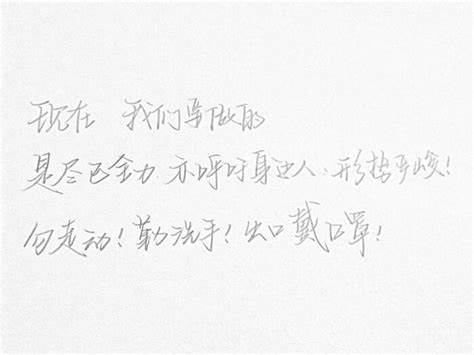 现在 我们要做的
是尽己全力 亦呼吁身边人、形势严峻!
勿走动!勤洗手!出口戴口罩!